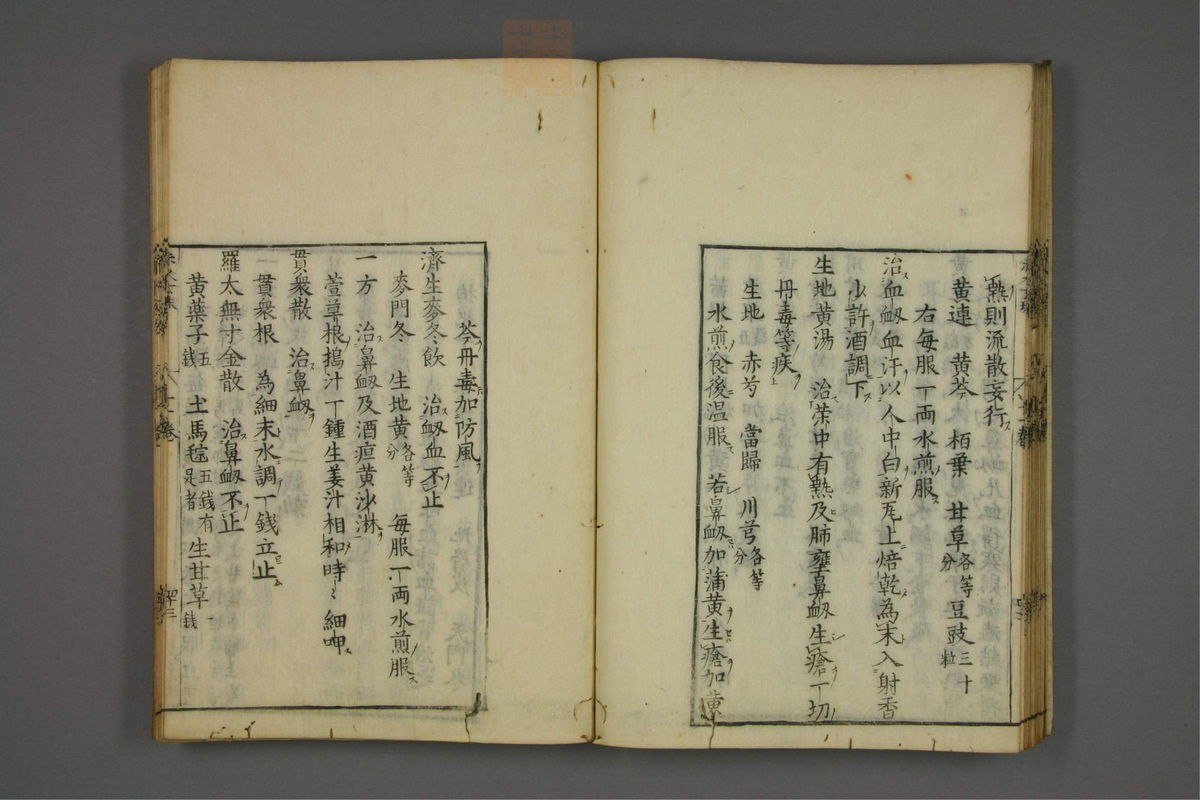 熱則流散妄行
黄連　黄芩　栢葉　甘草各等分　豆豉三十粒
右每服一両水煎服
治血衂血汗以人中白新瓦上焙乾為末入射香
少許酒調下
生地黄湯　治荣中有熱及肺壅鼻衂生瘡一切
丹毒等疾
生地　赤芍　當歸　川芎各等分
水煎食後温服　若鼻衂加蒲黄生瘡加黄
芩丹毒加防風
濟生麥冬飲　治衂血不止
麥門冬　生地黄各等分　每服一両水煎服
一方　治鼻衂及酒疸黄沙淋
萱草根搗汁一鍾生姜汁相和時〻細呷
貫衆散　治鼻衂
貫衆根　為細末水調一錢立止
羅太無寸金散　治鼻衂不止
黄藥子五錢　土馬騣五錢有是者　生甘草一錢